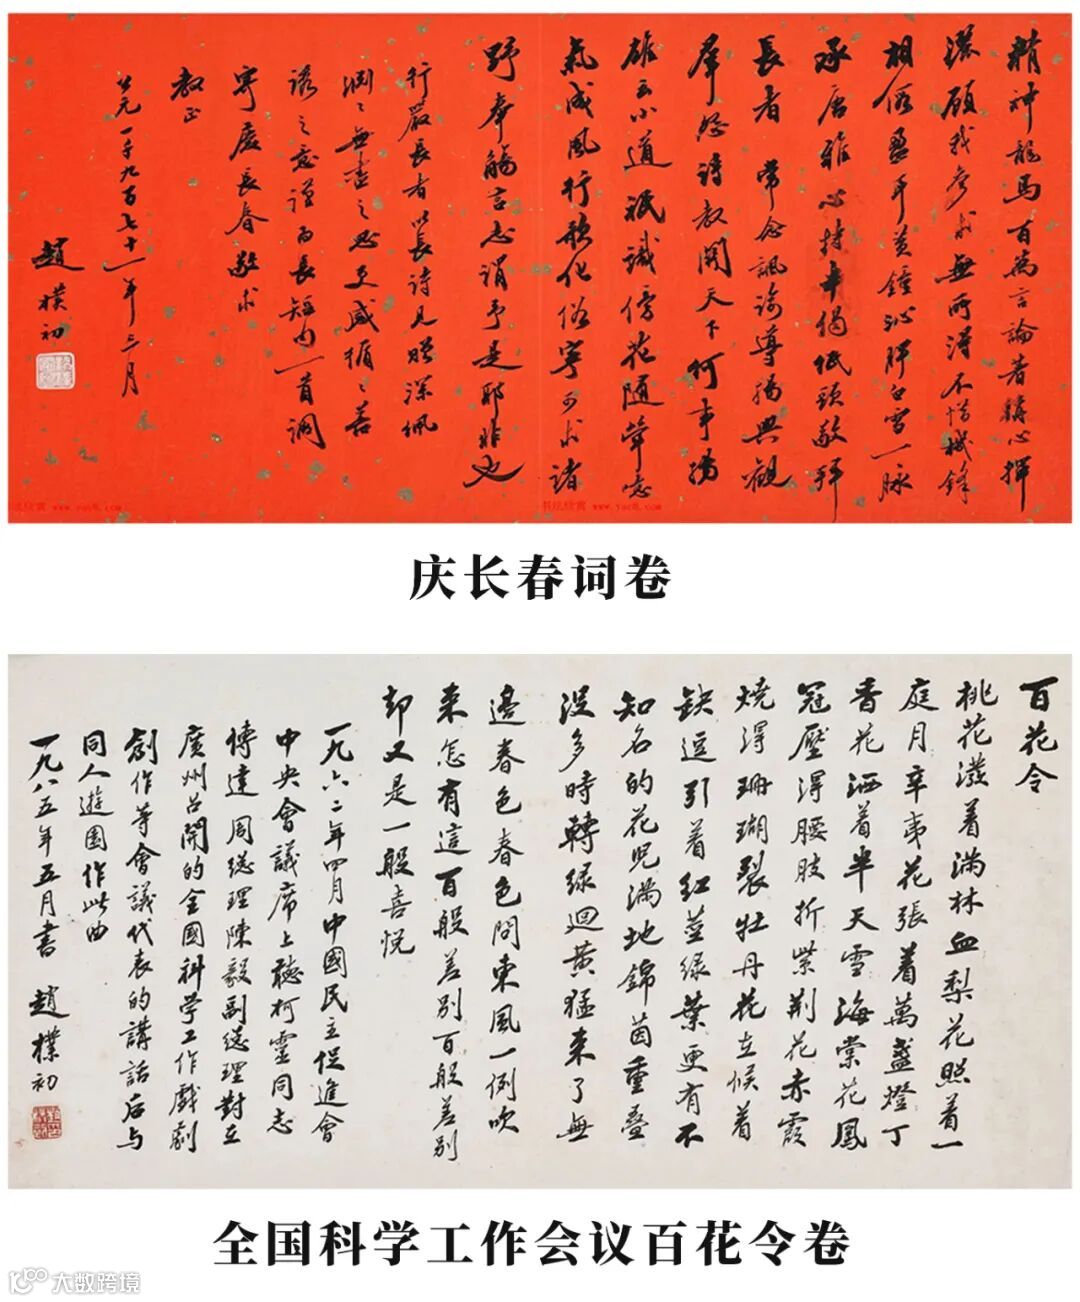 精神龍馬百萬言論著精心揮
顧我參求無所得不惜機鋒
相假盈耳黃鍾沁脾白雪一脉
承唐雅心持半偈低頭敬拜
長者常念諷諭導揚興觀
羣怨詩教開天下何事揚
雄云小道祇識傍花隨聲忘
氣成風行歌化俗寧可求諸
野奉觴言志誚予是耶非也
行嚴長者以長詩見贈深佩
淵〻無盡之思更感循〻善
誘之意謹為長短句一首調
寄慶長春敬求
教正
公元一千九百七十一年三月
趙樸初
书法欣赏 www.yac8.com
书法欣赏 www.yac8.com
庆长春词卷
百花令
桃花潑着滿林血梨花照着一
庭月辛夷花張着萬盞燈丁
香花洒着半天雪海棠花鳳
冠壓得腰肢折紫荆花赤霞
燒得珊瑚裂牡丹花立候着
缺逗引着紅莖绿葉更有不
知名的花児滿地錦茵重疊
没多時轉绿迴黃猛来了無
邊春色春色問東風一例吹
来怎有這百般差別百般差别
却又是一般喜悦
一九六二年四月中國民主促進會
中央會議席上聽柯靈同志
傳達周總理陳毅副總理對在
廣州召開的全國科学工作戲劇
創作等會議代表的講話后与
同人遊園作此曲
一九八五年五月書 趙樸初
全国科学工作会议百花令卷
大数跨境